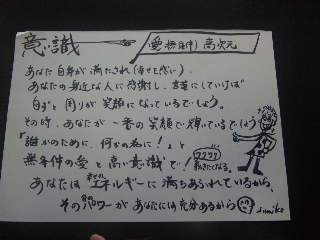 意識 愛(無条件) 高次元
あなた自身が満たされ(幸せを感じ)、
あなたの身近な人に感謝し、言葉にしていけば
自ずと周りが笑顔になっているでしょう。
その時、あなたが一番の笑顔で輝いているでしょう
『誰かのために、何かの為に!』と
無条件の愛と高い意識で!
ワクワク
あなたはエネルギーに満ちあふれているから、
そのパワーがあなたには充分あるから